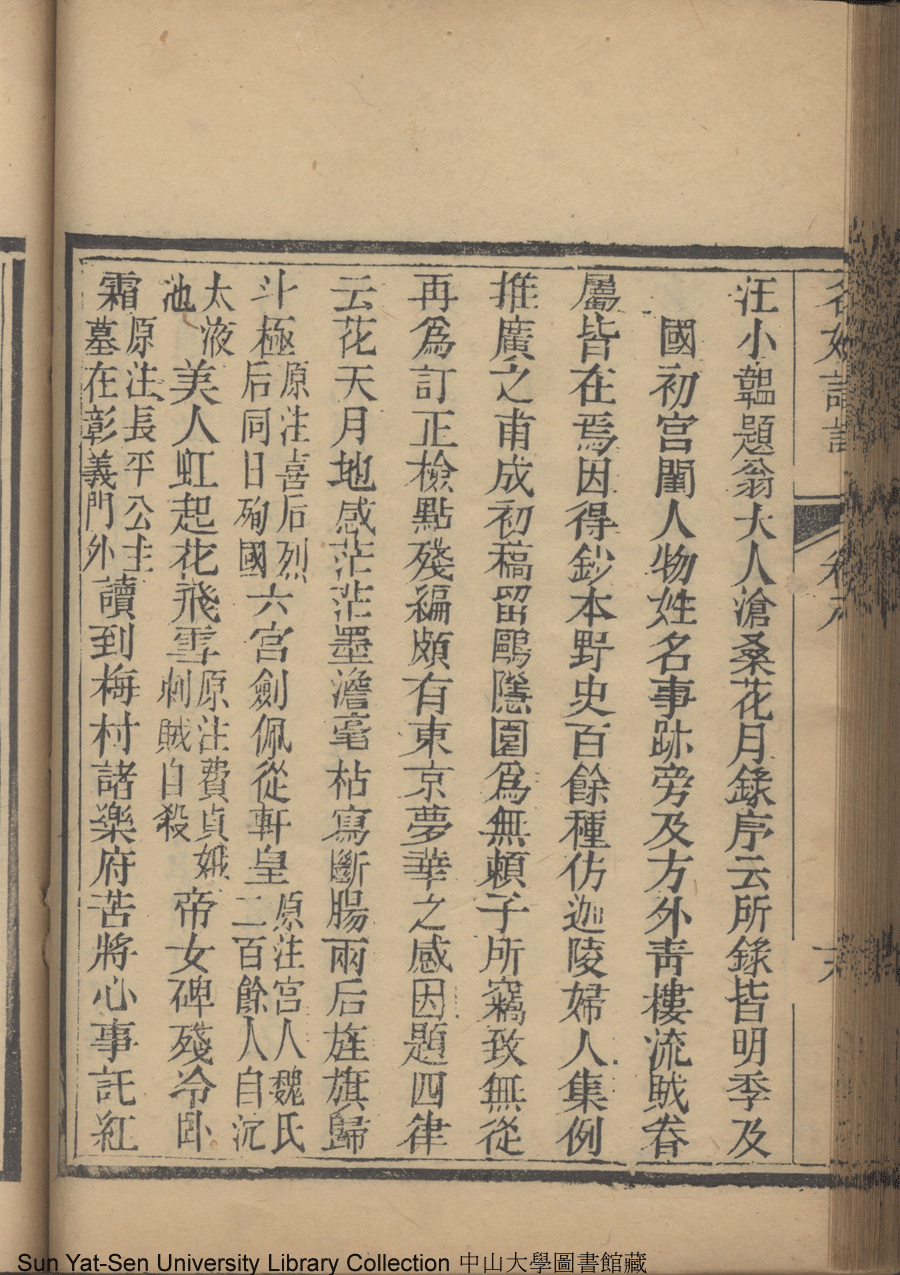 名媛詩話 卷八
汪小韞題翁大人滄桑花月錄序云所錄皆明季及
國初宮閨人物姓名事跡旁及方外靑樓流賊眷
屬皆在焉因得鈔本野史百餘種仿迦陵婦人集例
推廣之甫成初稿留鷗隱園爲無賴子所竊致無從
再爲訂正檢點殘編頗有東京夢華之感因題四律
云花天月地感茫茫墨澹毫枯寫斷腸兩后旌旗歸
斗極原注喜后烈后同日殉國六宮劍佩從軒皇原注宮人魏氏二百餘人自沉
太液池美人虹起花飛雪原注費貞娥刺賊自殺帝女碑殘冷臥
霜原注長平公主墓在彰義門外讀到梅村諸樂府苦將心事託紅
Sun Yat-Sen University Library Collection 中山大學圖書館藏